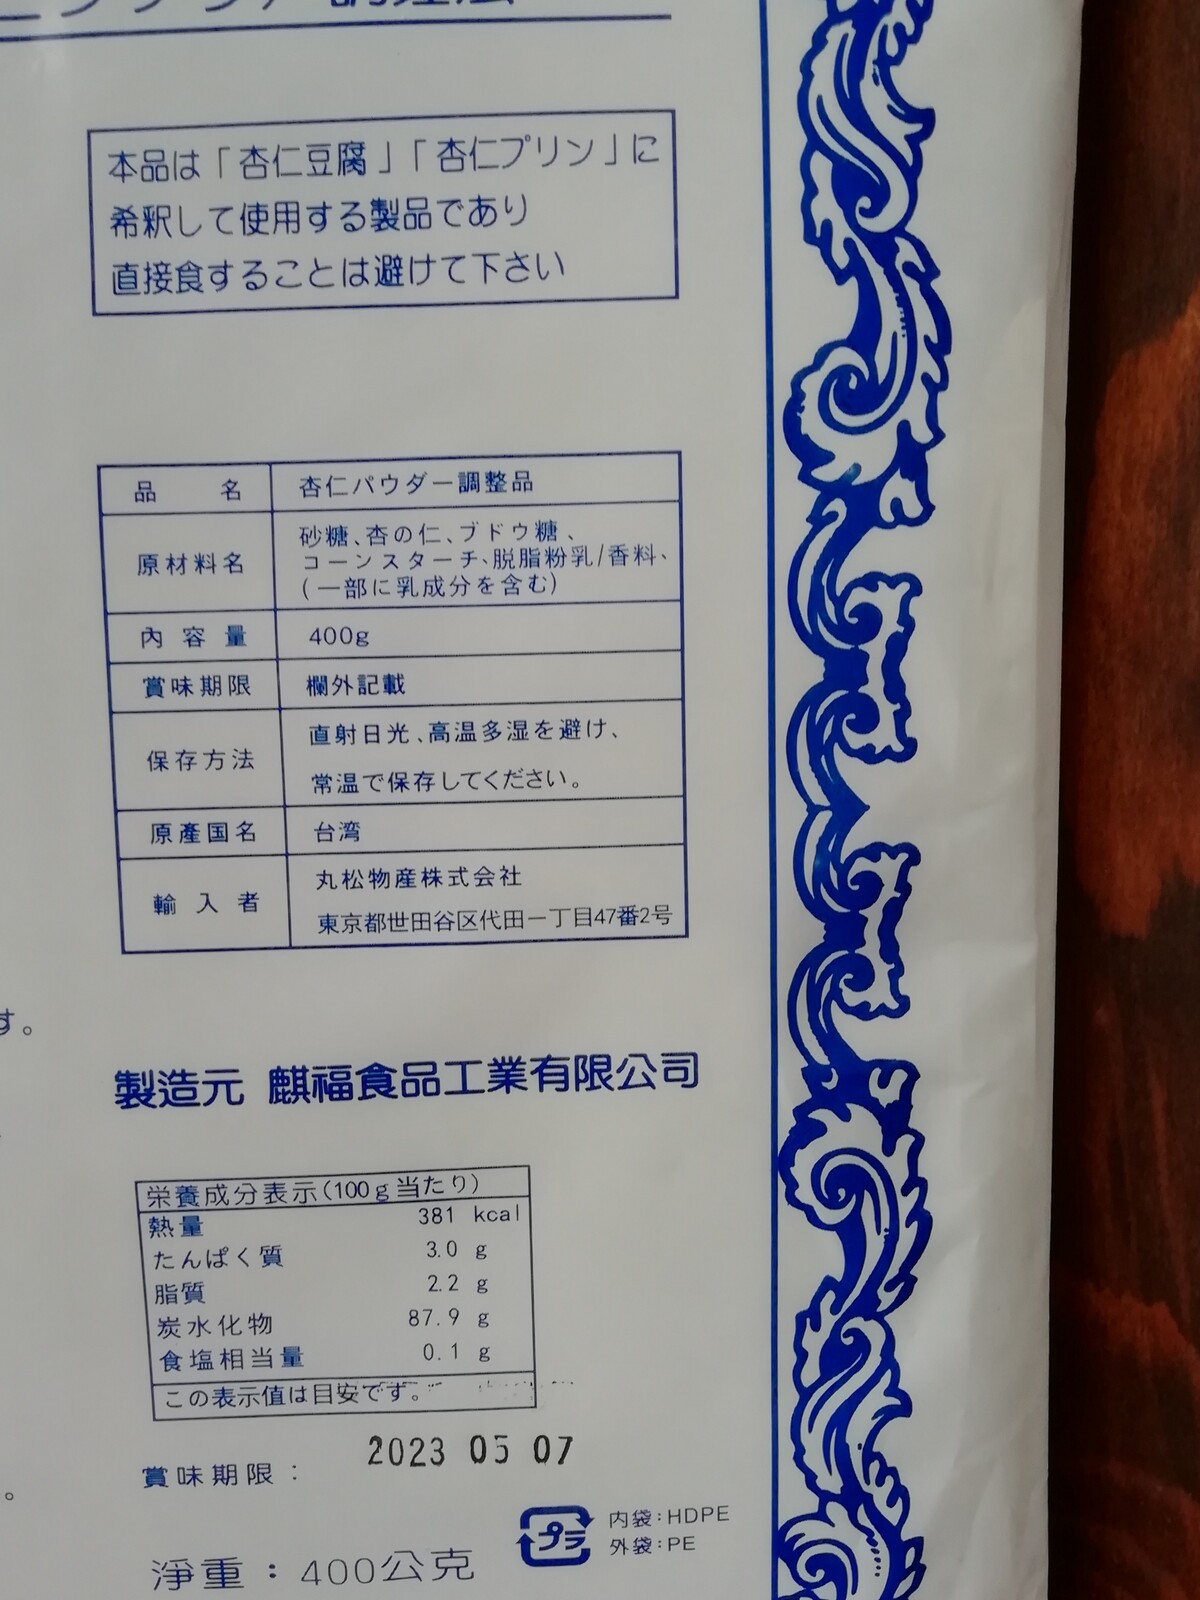 本品は「杏仁豆腐」「杏仁プリン」に
希釈して使用する製品であり
直接食することは避けて下さい
品名 杏仁パウダー調整品
原材料名 砂糖、杏の仁、ブドウ糖、
コーンスターチ、脱脂粉乳/香料、
(一部に乳成分を含む)
内容量 400g
賞味期限 欄外記載
保存方法 直射日光、高温多湿を避け、
常温で保存してください。
原産国名 台湾
輸入者 丸松物産株式会社
東京都世田谷区代田一丁目47番2号
す。
製造元 麒福食品工業有限公司
栄養成分表示(100g当たり)
熱量 381 kcal
たんぱく質 3.0 g
脂質 2.2 g
炭水化物 87.9 g
食塩相当量 0.1 g
この表示値は目安です。
賞味期限: 2023 05 07
プラ
内袋:HDPE
外袋:PE
淨重:400公克